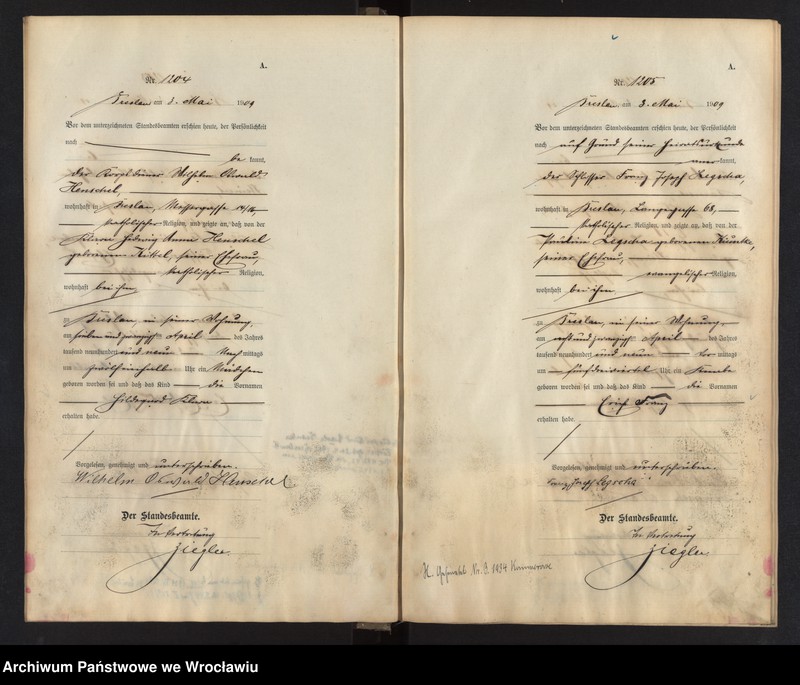 A.
Nr. 1204
Breslau am 3. Mai 1909
Vor dem unterzeichneten Standesbeamten erschien heute, der Persönlichkeit
nach
be kannt,
der Wilhelm Oswald
Henschel,
wohnhaft in Breslau, Messergasse 14/16,
katholischer Religion, und zeigte an, daß von der
Klara Hedwig Anna Henschel
geborenen Kittel, seiner Ehefrau,
katholischer Religion,
wohnhaft bei ihm
zu Breslau, in seiner Wohnung,
am sieben und zwanzigsten April des Jahres
tausend neunhundert und neun Nach mittags
um Uhr ein Mädchen
geboren worden sei und daß das Kind die Vornamen
Hildegard Klara
erhalten habe.
Vorgelesen, genehmigt und unterschrieben.
Wilhelm Oswald Henschel
Der Standesbeamte.
In Vertretung
Ziegler
A.
Nr. 1205
Breslau am 3. Mai 1909
Vor dem unterzeichneten Standesbeamten erschien heute, der Persönlichkeit
nach auf Grund seiner Heiratsurkunde
aner kannt,
der Schlosser Franz Joseph Legscha,
wohnhaft in Breslau, Langegasse 68,
katholischer Religion, und zeigte an, daß von der
Legscha geborenen
seiner Ehefrau,
evangelischer Religion,
wohnhaft bei ihm
zu Breslau, in seiner Wohnung
am und zwanzigsten April des Jahres
tausend neunhundert und neun Vor mittags
um fünfdreiviertel Uhr ein Knabe
geboren worden sei und daß das Kind die Vornamen
Erich Franz
erhalten habe.
Vorgelesen, genehmigt und unterschrieben.
Franz Joseph Legscha
Der Standesbeamte.
In Vertretung
Ziegler
Nr. 1934
Archiwum Państwowe we Wrocławiu